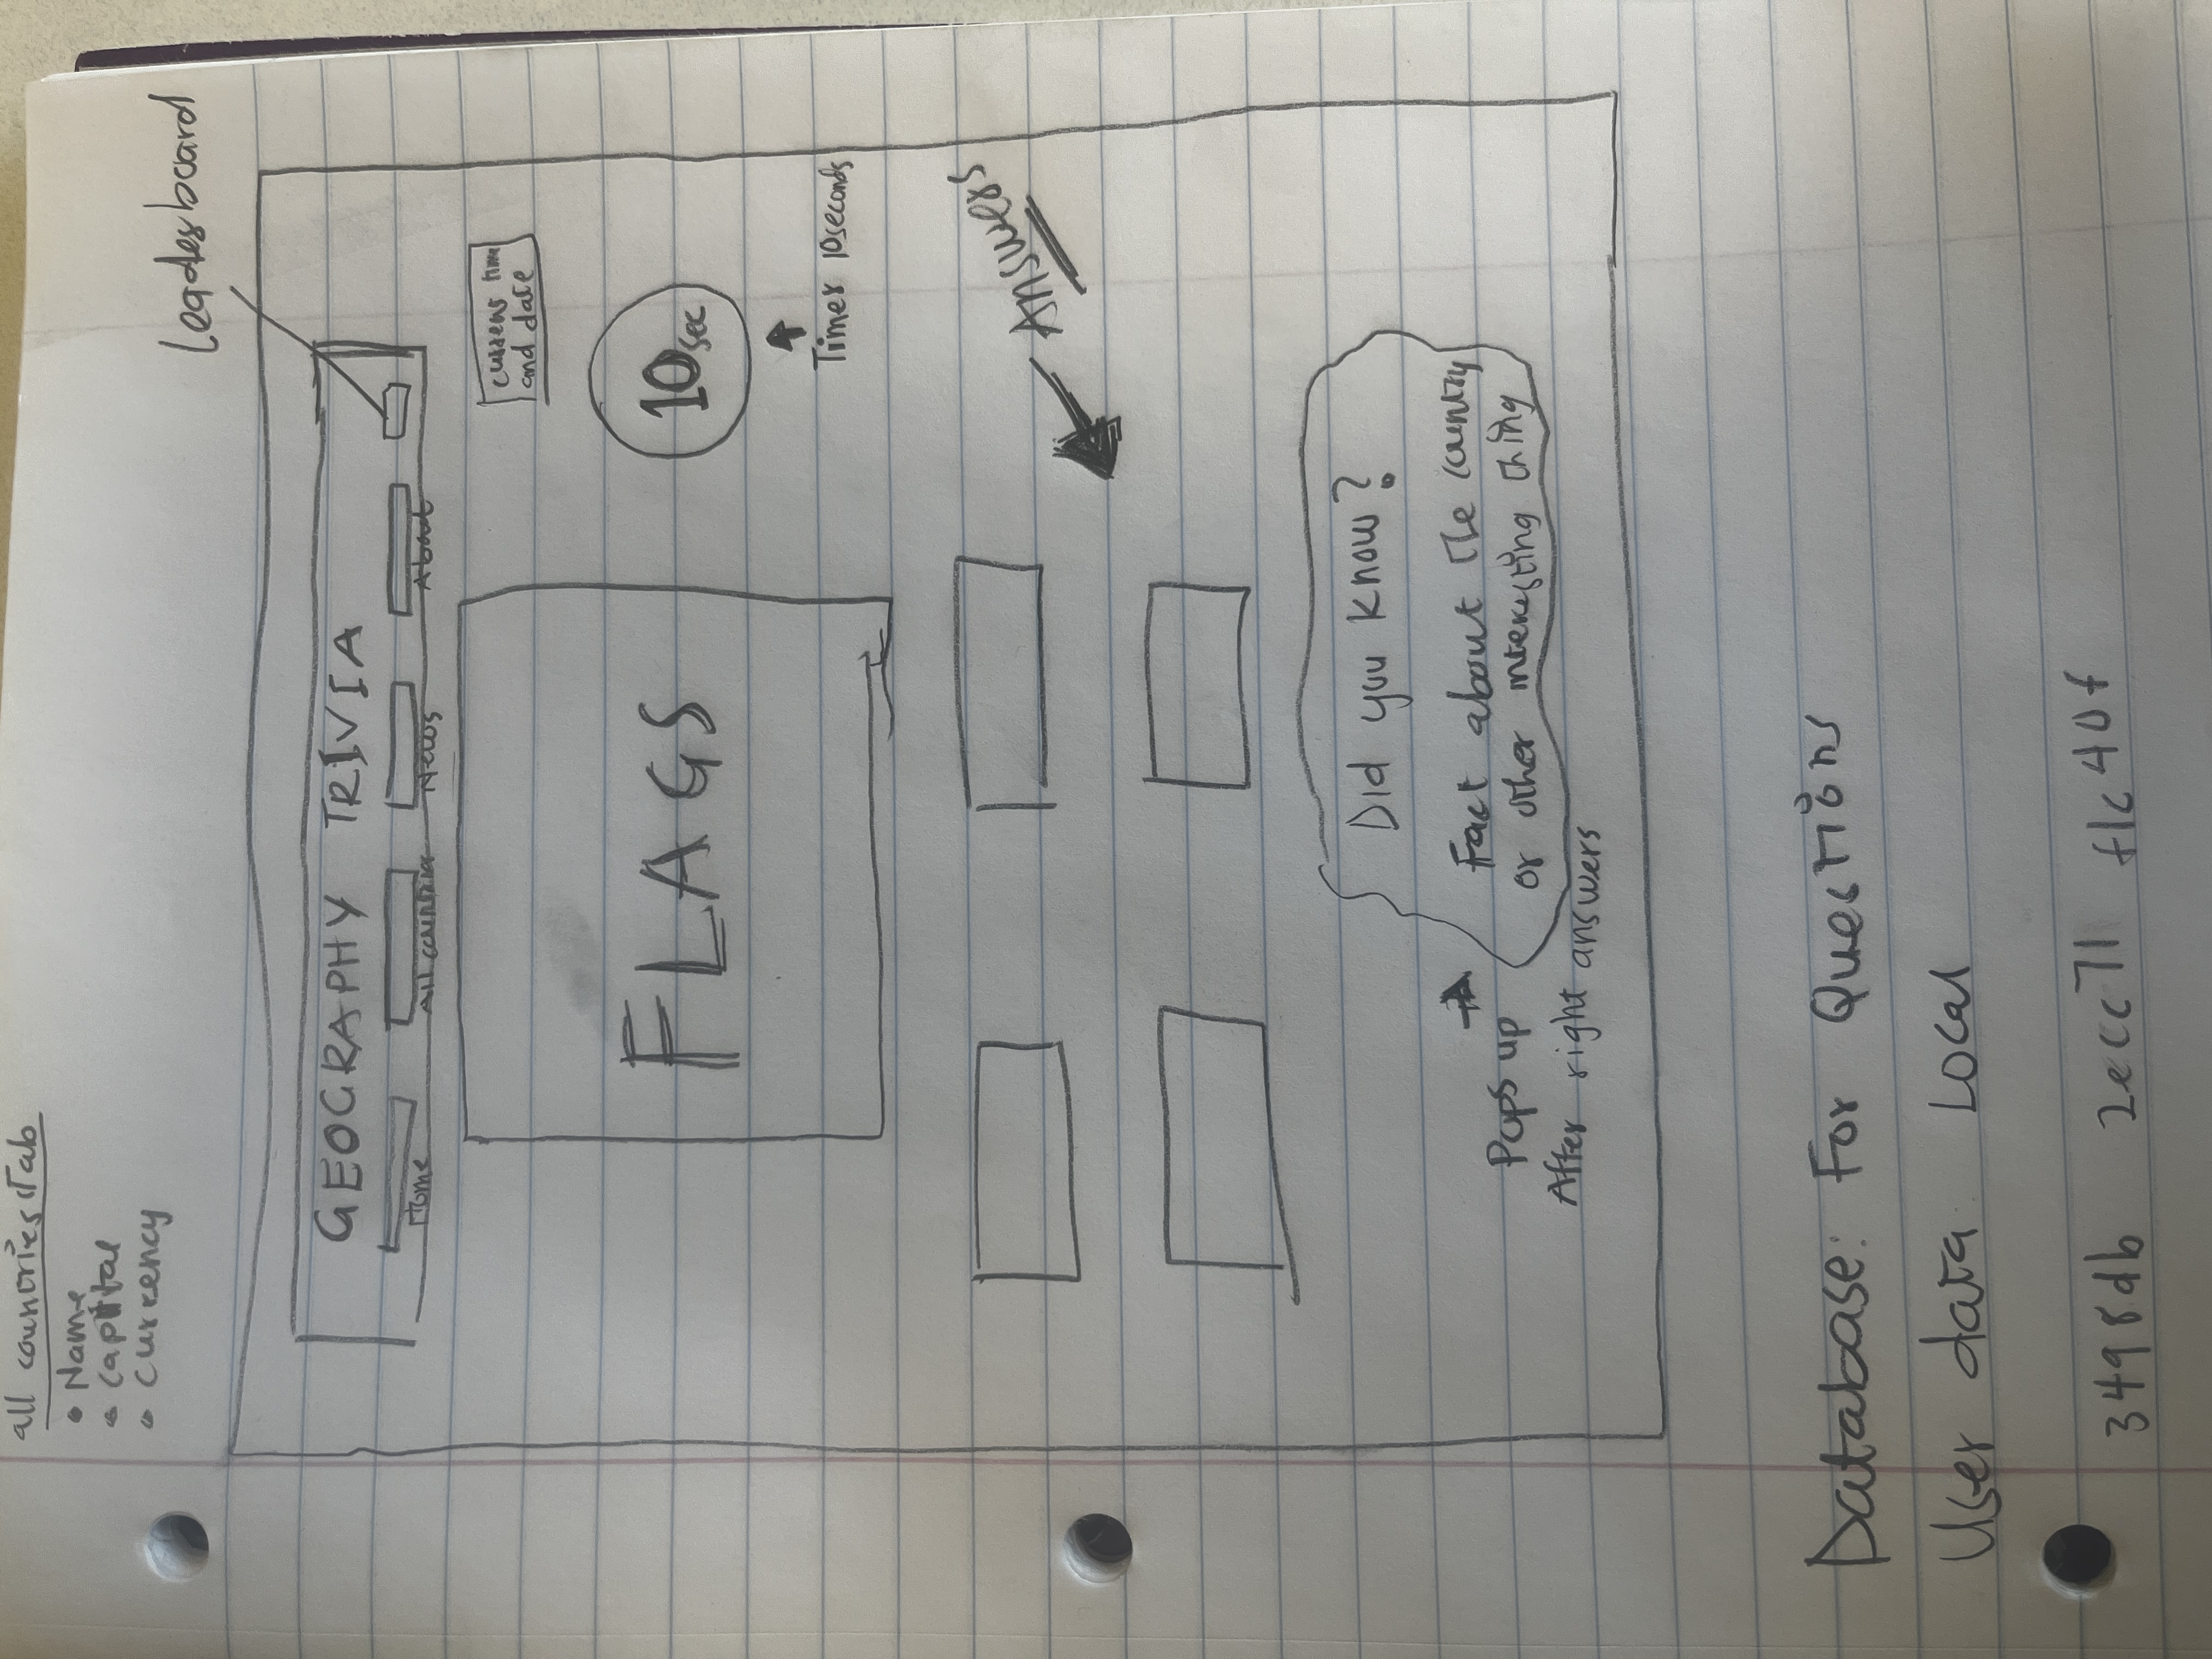 all countries Tab
• Name
• capital
• currency
Leaderboard
GEOGRAPHY TRIVIA
Home
All countries
News
About
current time
and date
FLAGS
10sec
Timer 10seconds
Answers
Did you know?
Fact about the country
or other interesting thing
Pops up
After right answers
Database: For Questions
User data Local
3498db 2ecc71 f1c40f